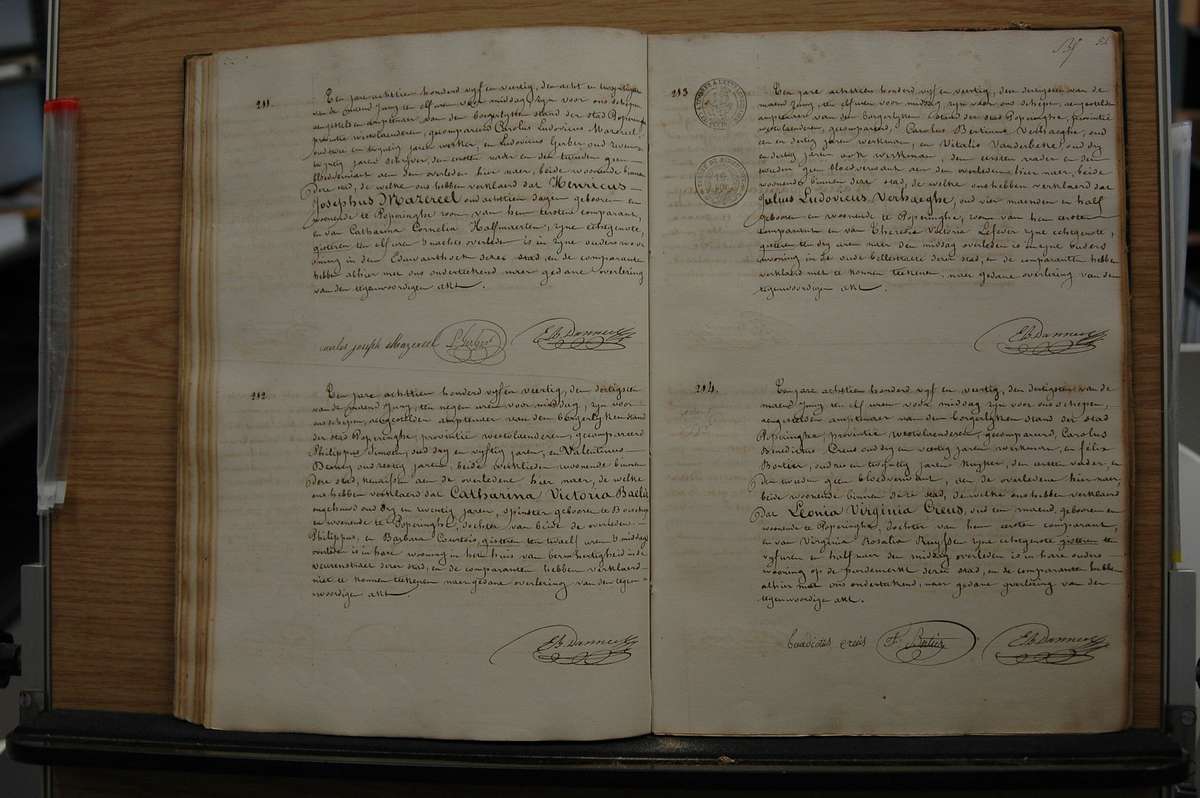 211.
Ten jare achttien honderd vyf en veertig, den acht en twintigsten
van de maend Juny ten elf uren voor middag, zyn voor ons schepen
aengestelden amptenaer van den borgerlyken stand der stad Poperinghe
provintie westvlaenderen, gecompareerd Carolus Ludovicus Mazereel,
oud twee en twintig jaren werker, en Ludovicus Gerber oud
twintig jaren schryver, den eersten vader en den tweeden geen
bloedverwant aen den overleden hier naer, beide woonende binnen
dese stad, de welke ons hebben verklaerd dat Henricus
Josephus Mazereel oud achttien dagen geboren en
woonende te Poperinghe zoon van hem eersten comparant,
en van Catharina Cornelia Halfmaerten, zyne echtgenote,
gisteren ten elf uren s'nachts overleden is in zyne ouders woo-
ning in den Edewaerthoek dezer stad, en de comparanten
hebben alhier met ons onderteekend naer gedane overlezing
van den tegenwoordigen akt.
carolus joseph Mazereel L. Gerber
212.
Ten jare achttien honderd vyf en veertig, den dertigsten
van de maend Juny, ten negen uren voor middag, zyn voor
ons schepen, aengestelden amptenaer van den borgerlyken stand
der stad Poperinghe, provintie westvlaenderen, gecompareerd
Philippus Simoen, oud dry en vyftig jaren, en Valentinus
oud zestig jaren, beide werklieden woonende binnen
dese stad, kenissen aen de overledene hier naer, de welke
ons hebben verklaerd dat Catharina Victoria
ongehuwd oud dry en twentig jaren, spinster geboren te
en woonende te Poperinghe, dochter van beide de overledene
Philippus, en Barbara Courtois, gisteren ten twaelf uren s'middags
overleden is in hare wooning in het huis van bermhertigheid in de
veurenstraet dezer stad, en de comparanten hebben verklaerd
niet te konnen teekenen naer gedane overlezing van den tegen-
woordigen akt.
213
Ten jare achttien honderd vyf en veertig, den dertigsten van de
maend Juny, ten elf uren voor middag, zyn voor ons schepen, aengestelden
amptenaer van den borgerlyken stand der stad Poperinghe, provintie
westvlaenderen, gecompareerd, Carolus Bertinus Verhaeghe, oud
een en dertig jaren werkman, en Vitalis Vanderbeke oud dry
en dertig jaren ook werkman, den eersten vader en den
tweeden geen bloedverwant aen den overledenen hier naer, beide
woonende binnen dese stad, de welke ons hebben verklaerd dat
Julius Ludovicus Verhaeghe, oud vier maenden en half
geboren en woonende te Poperinghe, zoon van hem eersten
comparant en van Theresia Victoria Lefever zyne echtgenote,
gisteren ten dry uren naer den middag overleden is in zyne ouders
wooning in de oude bellestraete dezer stad, en de comparanten hebben
verklaerd niet te konnen teekenen, naer gedane overlezing van den
tegenwoordigen akt.
214.
Ten jare achttien honderd vyf en veertig, den dertigsten van de
maend Juny ten elf uren voor middag zyn voor ons schepen,
aengestelden amptenaer van den borgerlyken stand der stad
Poperinghe, provintie westvlaenderen, gecompareerd, Carolus
Benedictus Creus oud dry en veertig jaren werkman, en félix
jaren kuyper, den eersten vader, en
den tweeden geen bloedverwant, aen de overledene hier naer,
beide woonende binnen dese stad, de welke ons hebben verklaerd
dat Leonia Virginia Creus, oud een maend, geboren en
woonende te Poperinghe, dochter van hem eersten comparant,
en van Virginia Rosalia zyne echtgenote gisteren ten
vyf uren en half naer den middag overleden is in hare ouders
wooning op de peerdemerkt dezer stad, en de comparanten hebben
alhier met ons onderteekend, naer gedane overlezing van den
tegenwoordigen akt.